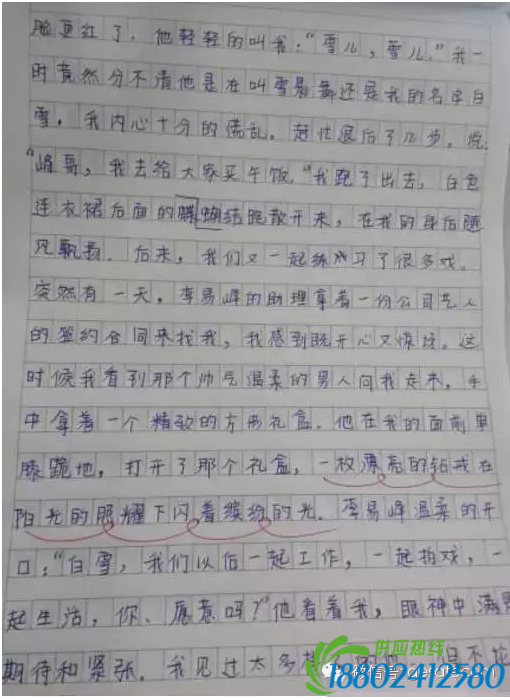 脸更红了。他轻轻的叫我:“雪儿,雪儿。”我一
时竟然分不清他是在叫雪最舞还是我的名字白
雪,我内心十分的慌乱。赶忙退后了几步。说:
“峰哥,我去给大家买午饭。”我跑了出去,白色
连衣裙后面的蝴蝶结跑散开来,在我的身后随
风飘扬。后来,我们又一起练习了很多戏。
突然有一天,李易峰的助理拿着一份公司艺人
的签约合同来找我,我感到既开心又惊讶。这
时候我看到那个帅气温柔的男人向我走来,手
中拿着一个精致的方形礼盒。他在我的面前单
膝跪地,打开了那个礼盒,一枚漂亮的钻戒在
阳光的照耀下闪着缤纷的光。李易峰温柔的开
口:“白雪,我们以后一起工作,一起拍戏,一
起生活,你、愿意吗?”他看着我,眼神中满是
期待和紧张。我见过太多
供应热线
18802412580